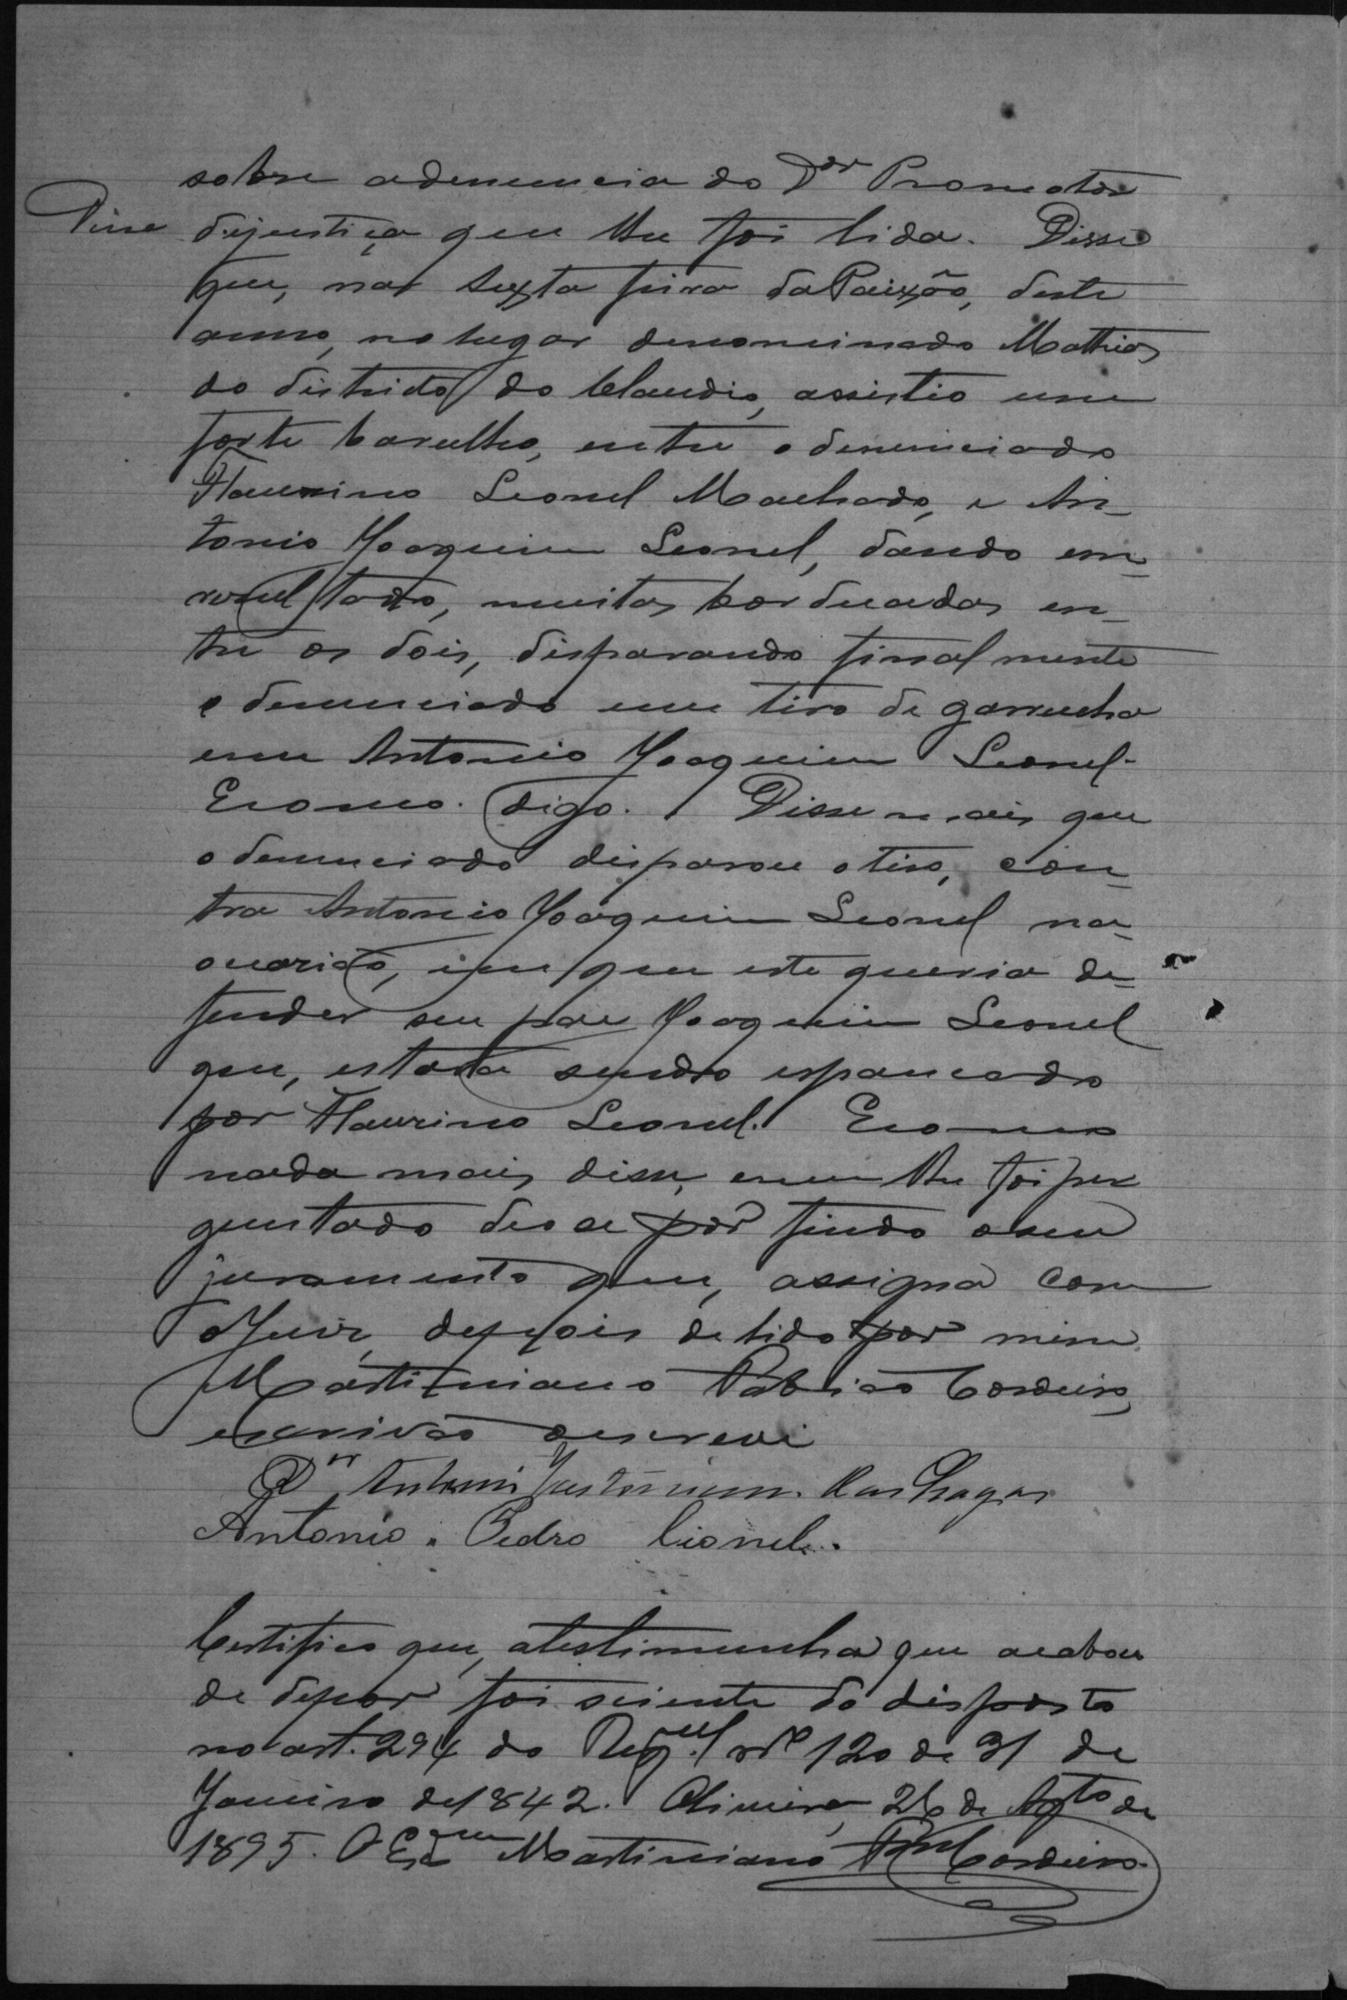 sobre adenuncia do Dor Promotor
Disse
dejustiça que lhe foi lida. Disse
que, na sexta feira da Paixão, deste
anno, no lugar denominado Mathias
do districto do Claudio, assistio um
forte barulho, entre o denunciado
Flaurino Leonel Machado, e An_
tonio Joaquim Leonel, dando em_
resultado, muitasborduadas en_
tre os dois, disparando finalmente
o denunciado um tiro de garrucha
em Antonio Joaquim Leonel.
E como. digo. Disse mais que
o denunciado disparou o tiro, con_
tra Antonio Joaquim Leonel na_
ocasião, em que este queria de_
fender seu pae Joaquim Leonel
que, estava sendo espancado
por Flaurino Leonel. E como
nada mais disse, e nem lhe foi per
guntado deo se por findo o seu
juramento que, assigna com
o Juiz, depois de lido por mim
Martiniano Cordeiro,
escrivão o escrevi
Dr Antonio das Chagas
Antonio. Pedro Lionel.
Certifico que, atestimunha que acabou
de depor foi sciente do disposto
no art. 294 do Regul. nº 120 de 31 de
Janeiro de 1842. Oliveira, 26 de Agto de
1895. O Escm Martiniano Cordeiro.